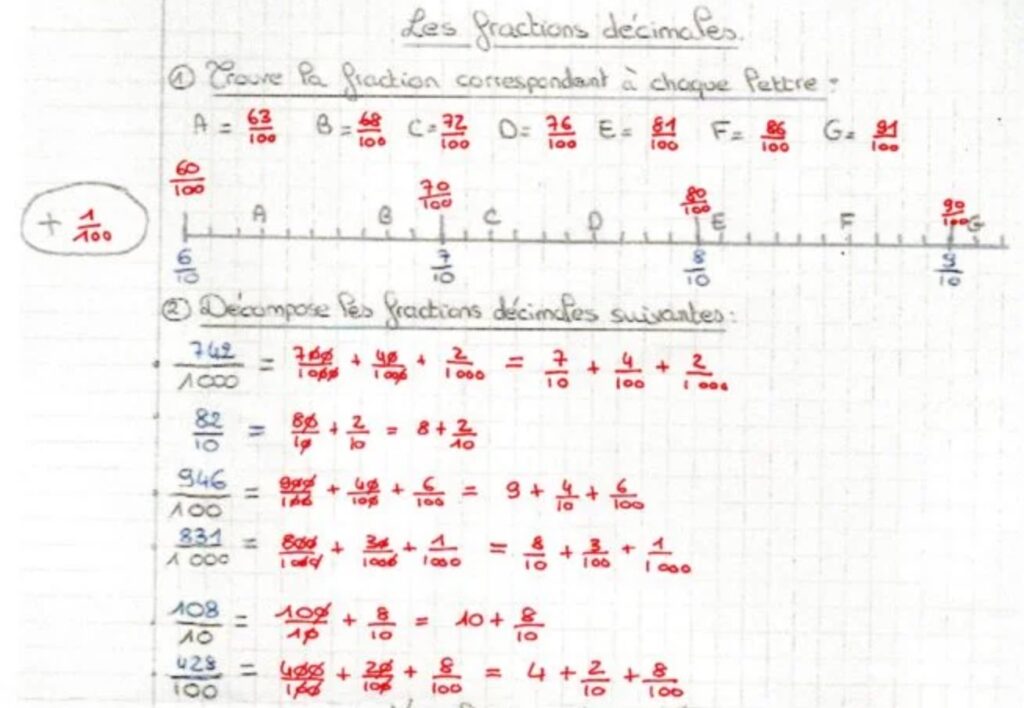 Les fractions décimales.
① Trouve la fraction correspondant à chaque lettre :
A = 63/100 B = 68/100 C = 72/100 D = 76/100 E = 81/100 F = 86/100 G = 91/100
60/100 70/100 80/100 90/100
+ 1/100 A B C D E F G
6/10 7/10 8/10 9/10
② Décompose les fractions décimales suivantes :
742/1000 = 700/1000 + 40/1000 + 2/1000 = 7/10 + 4/100 + 2/1000
82/10 = 80/10 + 2/10 = 8 + 2/10
946/100 = 900/100 + 40/100 + 6/100 = 9 + 4/10 + 6/100
831/1000 = 800/1000 + 30/1000 + 1/1000 = 8/10 + 3/100 + 1/1000
108/10 = 100/10 + 8/10 = 10 + 8/10
428/100 = 400/100 + 20/100 + 8/100 = 4 + 2/10 + 8/100